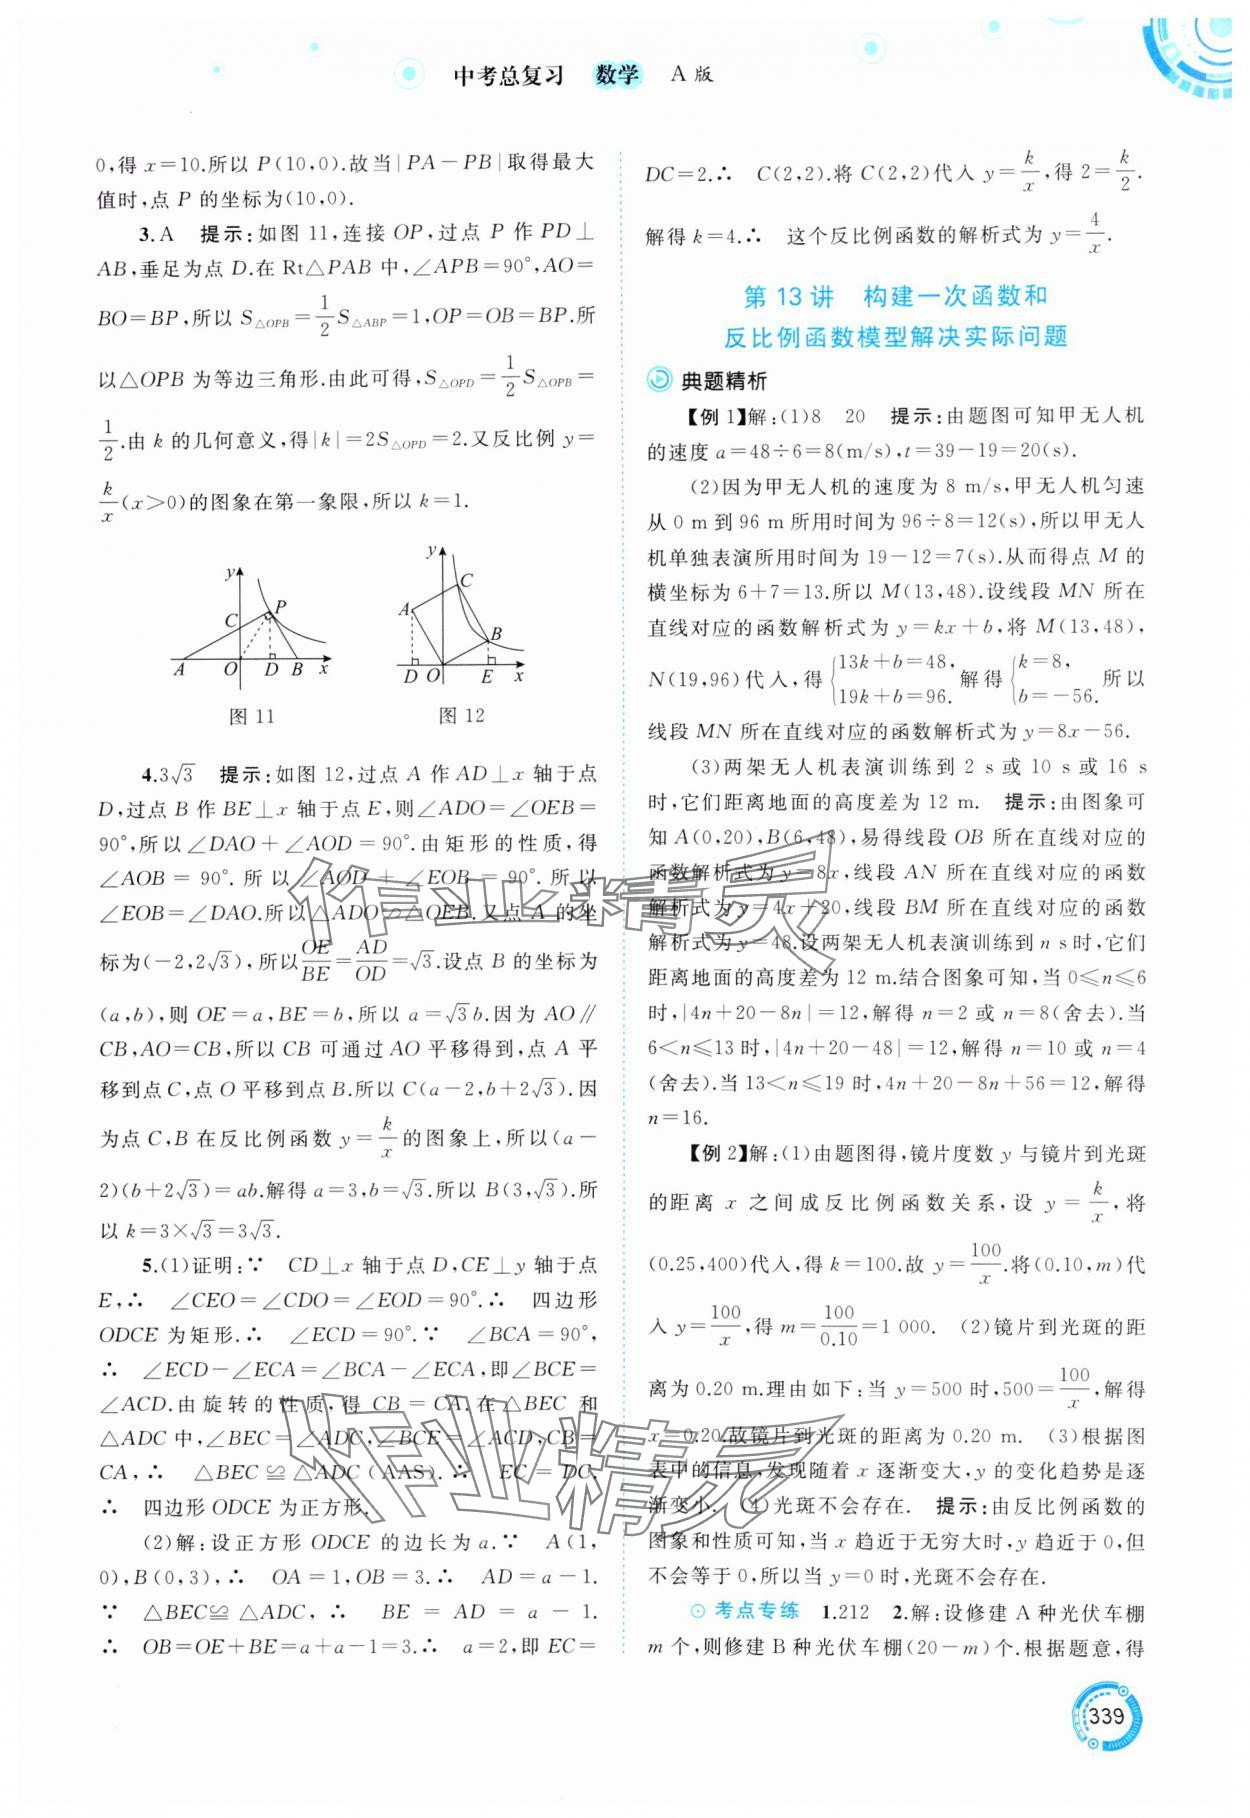 中考总复习 数学 A版
0,得 x=10.所以 P(10,0).故当|PA-PB|取得最大
值时,点 P 的坐标为(10,0).
3.A 提示:如图 11,连接 OP,过点 P 作 PD⊥
AB,垂足为点 D.在 Rt△PAB 中,∠APB=90°,AO=
BO=BP,所以 S△OPB=1/2S△ABP=1,OP=OB=BP.所
以△OPB 为等边三角形.由此可得,S△OPD=1/2S△OPB=
1/2.由 k 的几何意义,得|k|=2S△OPD=2.又反比例 y=
k/x(x>0)的图象在第一象限,所以 k=1.
y C P A O D B x
图 11
y C A B D O E x
图 12
4.3√3 提示:如图 12,过点 A 作 AD⊥x 轴于点
D,过点 B 作 BE⊥x 轴于点 E,则∠ADO=∠OEB=
90°,所以∠DAO+∠AOD=90°.由矩形的性质,得
∠AOB=90°.所以∠AOD+∠EOB=90°.所以
∠EOB=∠DAO.所以△ADO∽△OEB.又点 A 的坐
标为(-2,2√3),所以OE/BE=AD/OD=√3.设点 B 的坐标为
(a,b),则 OE=a,BE=b,所以 a=√3b.因为 AO∥
CB,AO=CB,所以 CB 可通过 AO 平移得到,点 A 平
移到点 C,点 O 平移到点 B.所以 C(a-2,b+2√3).因
为点 C,B 在反比例函数 y=k/x的图象上,所以(a-
2)(b+2√3)=ab.解得 a=3,b=√3.所以 B(3,√3).所
以 k=3×√3=3√3.
5.(1)证明:∵ CD⊥x 轴于点 D,CE⊥y 轴于点
E,∴ ∠CEO=∠CDO=∠EOD=90°.∴ 四边形
ODCE 为矩形.∴ ∠ECD=90°.∵ ∠BCA=90°,
∴ ∠ECD-∠ECA=∠BCA-∠ECA,即∠BCE=
∠ACD.由旋转的性质,得 CB=CA.在△BEC 和
△ADC 中,∠BEC=∠ADC,∠BCE=∠ACD,CB=
CA,∴ △BEC≌△ADC(AAS).∴ EC=DC.
∴ 四边形 ODCE 为正方形.
(2)解:设正方形 ODCE 的边长为 a.∵ A(1,
0),B(0,3),∴ OA=1,OB=3.∴ AD=a-1.
∵ △BEC≌△ADC,∴ BE=AD=a-1.
∴ OB=OE+BE=a+a-1=3.∴ a=2,即 EC=
DC=2.∴ C(2,2).将 C(2,2)代入 y=k/x,得 2=k/2.
解得 k=4.∴ 这个反比例函数的解析式为 y=4/x.
第 13 讲 构建一次函数和
反比例函数模型解决实际问题
典题精析
【例 1】解:(1)8 20 提示:由题图可知甲无人机
的速度 a=48÷6=8(m/s),t=39-19=20(s).
(2)因为甲无人机的速度为 8 m/s,甲无人机匀速
从 0 m 到 96 m 所用时间为 96÷8=12(s),所以甲无人
机单独表演所用时间为 19-12=7(s).从而得点 M 的
横坐标为 6+7=13.所以 M(13,48).设线段 MN 所在
直线对应的函数解析式为 y=kx+b,将 M(13,48),
N(19,96)代入,得{13k+b=48,19k+b=96.解得{k=8,b=-56.所以
线段 MN 所在直线对应的函数解析式为 y=8x-56.
(3)两架无人机表演训练到 2 s 或 10 s 或 16 s
时,它们距离地面的高度差为 12 m. 提示:由图象可
知 A(0,20),B(6,48),易得线段 OB 所在直线对应的
函数解析式为 y=8x,线段 AN 所在直线对应的函数
解析式为 y=4x+20,线段 BM 所在直线对应的函数
解析式为 y=48.设两架无人机表演训练到 n s时,它们
距离地面的高度差为 12 m.结合图象可知,当 0≤n≤6
时,|4n+20-8n|=12,解得 n=2 或 n=8(舍去).当
6<n≤13 时,|4n+20-48|=12,解得 n=10 或 n=4
(舍去).当 13<n≤19 时,4n+20-8n+56=12,解得
n=16.
【例 2】解:(1)由题图得,镜片度数 y 与镜片到光斑
的距离 x 之间成反比例函数关系,设 y=k/x,将
(0.25,400)代入,得 k=100.故 y=100/x.将(0.10,m)代
入 y=100/x,得 m=100/0.10=1 000. (2)镜片到光斑的距
离为 0.20 m.理由如下:当 y=500 时,500=100/x,解得
x=0.20.故镜片到光斑的距离为 0.20 m. (3)根据图
表中的信息,发现随着 x 逐渐变大,y 的变化趋势是逐
渐变小. (4)光斑不会存在. 提示:由反比例函数的
图象和性质可知,当 x 趋近于无穷大时,y 趋近于 0,但
不会等于 0,所以当 y=0 时,光斑不会存在.
考点专练 1.212 2.解:设修建 A 种光伏车棚
m 个,则修建 B 种光伏车棚(20-m)个.根据题意,得
339
作业精灵
作业精灵